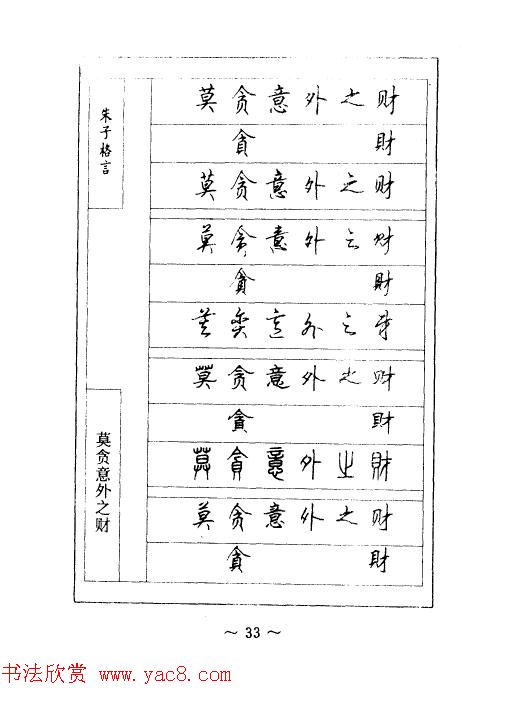 朱子格言
莫贪意外之财
莫贪意外之财
貪 財
莫贪意外之财
莫贪意外之财
貪 財
莫贪意外之财
莫贪意外之财
貪 財
莫貪意外之財
莫贪意外之财
貪 財
～ 33 ～
书法欣赏 www.yac8.com